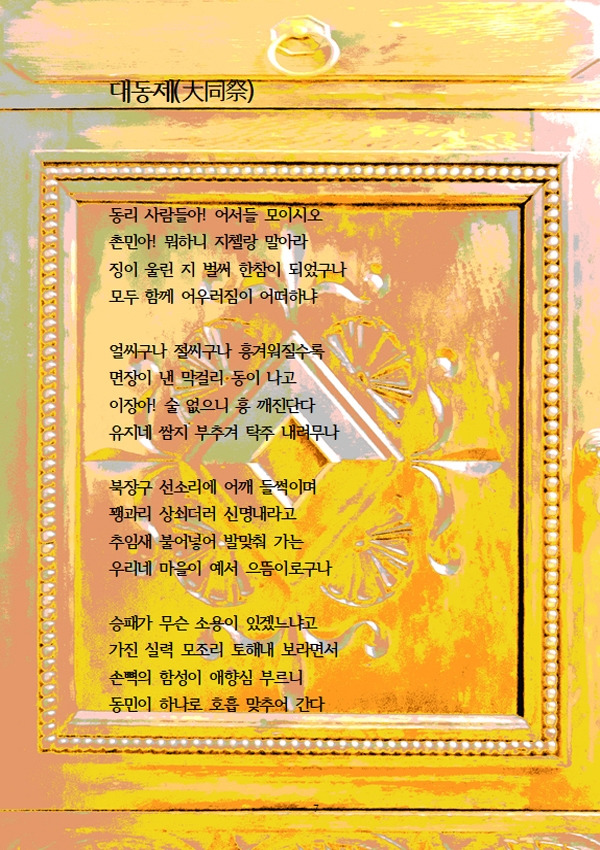 대동제(大同祭)
동리 사람들아! 어서들 모이시오
촌민아! 뭐하니 지첼랑 말아라
징이 울린 지 벌써 한참이 되었구나
모두 함께 어우러짐이 어떠하냐
얼씨구나 절씨구나 흥겨워질수록
면장이 낸 막걸리 동이 나고
이장아! 술 없으니 흥 깨진단다
유지네 쌈지 부추겨 탁주 내려무나
북장구 선소리에 어깨 들썩이며
꽹과리 상쇠더러 신명내라고
추임새 불어넣어 발맞춰 가는
우리네 마을이 예서 으뜸이로구나
승패가 무슨 소용이 있겠느냐고
가진 실력 모조리 토해내 보라면서
손뼉의 함성이 애향심 부르니
동민이 하나로 호흡 맞추어 간다
7